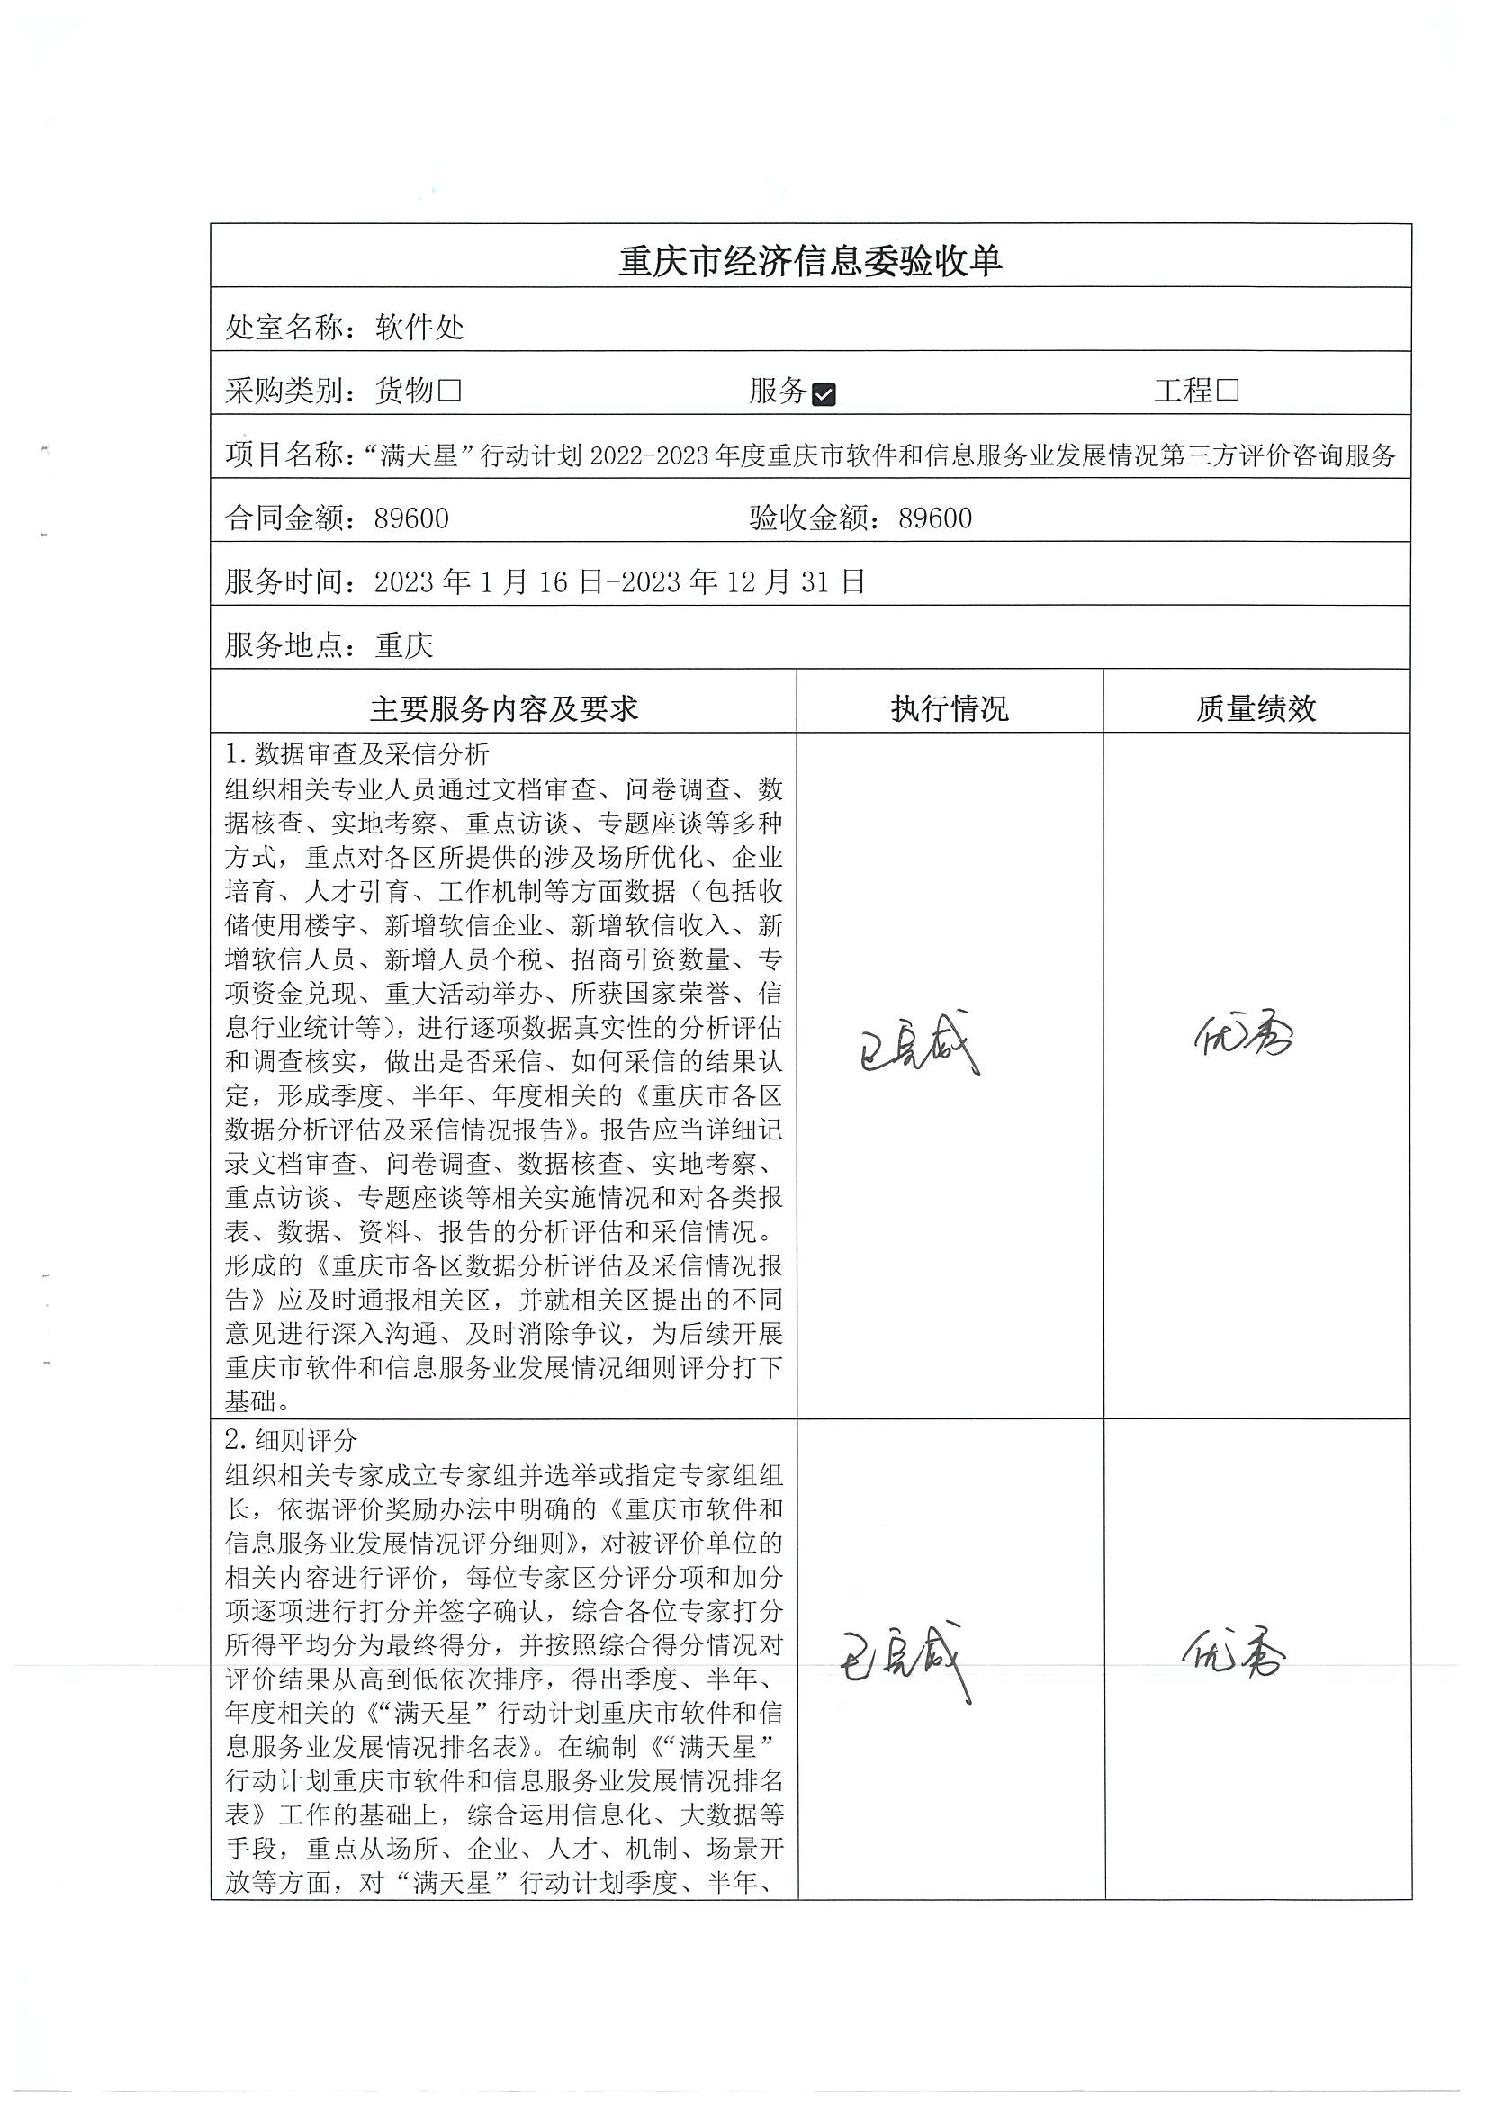 重庆市经济信息委验收单
处室名称：软件处
采购类别：货物☐ 服务☑ 工程☐
项目名称：“满天星”行动计划2022-2023年度重庆市软件和信息服务业发展情况第三方评价咨询服务
合同金额：89600 验收金额：89600
服务时间：2023年1月16日-2023年12月31日
服务地点：重庆
主要服务内容及要求 执行情况 质量绩效
1. 数据审查及采信分析
组织相关专业人员通过文档审查、问卷调查、数
据核查、实地考察、重点访谈、专题座谈等多种
方式，重点对各区所提供的涉及场所优化、企业
培育、人才引育、工作机制等方面数据（包括收
储使用楼宇、新增软信企业、新增软信收入、新
增软信人员、新增人员个税、招商引资数量、专
项资金兑现、重大活动举办、所获国家荣誉、信
息行业统计等），进行逐项数据真实性的分析评估
和调查核实，做出是否采信、如何采信的结果认
定，形成季度、半年、年度相关的《重庆市各区
数据分析评估及采信情况报告》。报告应当详细记
录文档审查、问卷调查、数据核查、实地考察、
重点访谈、专题座谈等相关实施情况和对各类报
表、数据、资料、报告的分析评估和采信情况。
形成的《重庆市各区数据分析评估及采信情况报
告》应及时通报相关区，并就相关区提出的不同
意见进行深入沟通、及时消除争议，为后续开展
重庆市软件和信息服务业发展情况细则评分打下
基础。
已完成 优秀
2. 细则评分
组织相关专家成立专家组并选举或指定专家组组
长，依据评价奖励办法中明确的《重庆市软件和
信息服务业发展情况评分细则》，对被评价单位的
相关内容进行评价，每位专家区分评分项和加分
项逐项进行打分并签字确认，综合各位专家打分
所得平均分为最终得分，并按照综合得分情况对
评价结果从高到低依次排序，得出季度、半年、
年度相关的《“满天星”行动计划重庆市软件和信
息服务业发展情况排名表》。在编制《“满天星”
行动计划重庆市软件和信息服务业发展情况排名
表》工作的基础上，综合运用信息化、大数据等
手段，重点从场所、企业、人才、机制、场景开
放等方面，对“满天星”行动计划季度、半年、
已完成 优秀